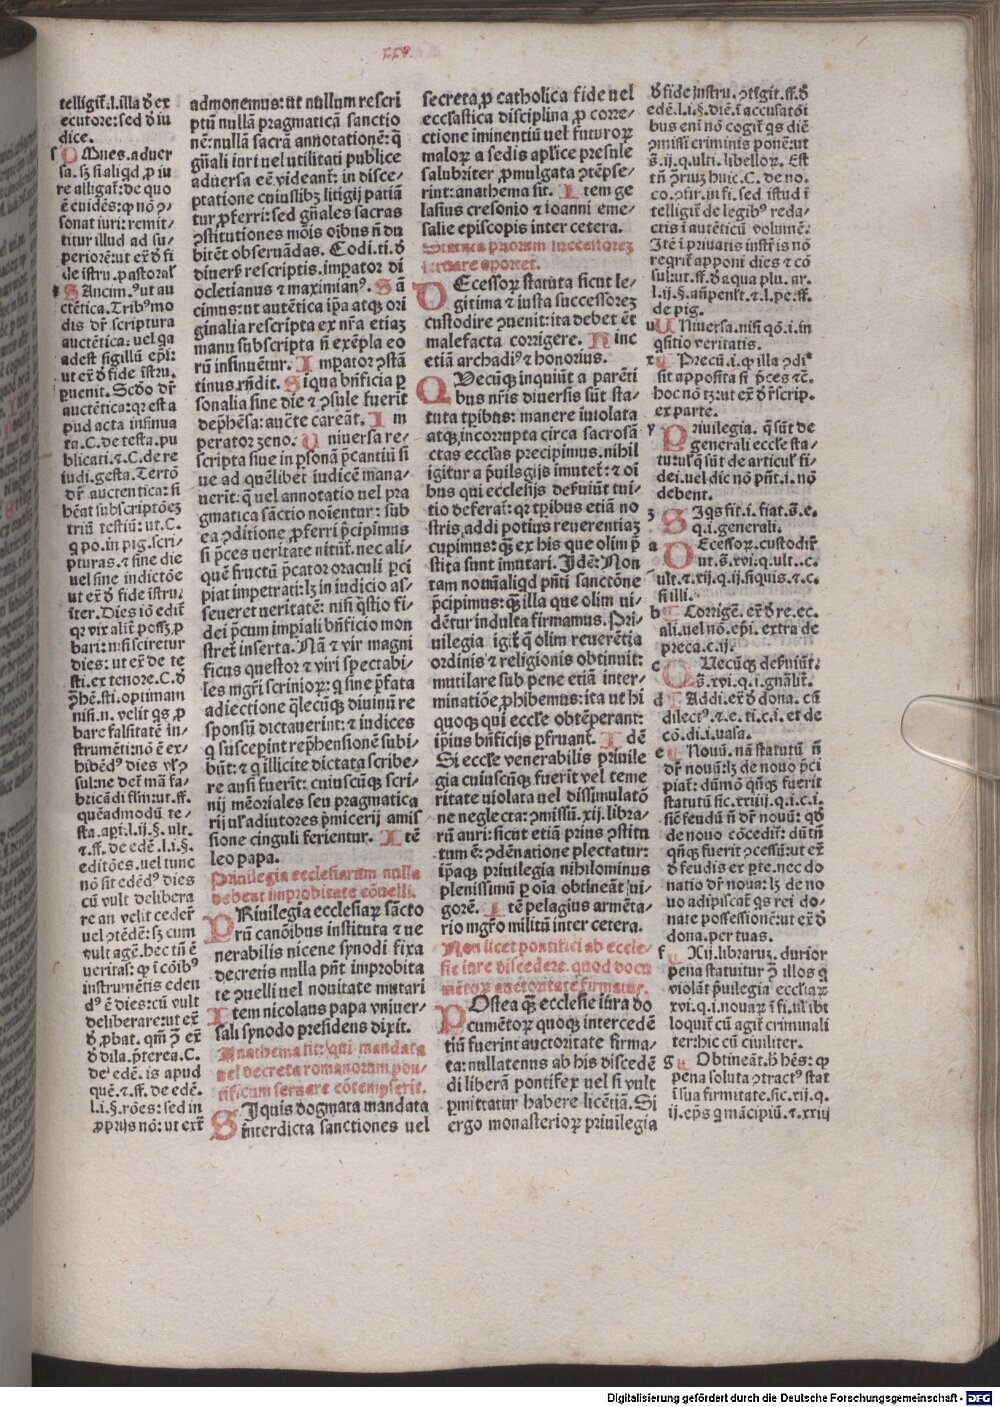 telligit̃.l.illa d̕ ex
ecutore:sed d̕ iu
dice.
OMnes.aduer
sa.sꝫ si aliqd ꝓ iu
re alligat̃:de quo
ē euidēs:ꝙ nō ↄ/
sonat iuri:remit/
titur illud ad su/
periorē:ut ex̃ d̕ fi
de īstru.pastoral̕
SAncim.ꝰut au
ctētica.Tribꝰmo
dis dr̃ scriptura
auctētica: uel qa
adest sigillū ep̄i:
ut ex̃ d̕ fide īstru.
ꝑuenit. Scd̕o dr̃
auctētica:qꝛ est a
pud acta insinua
ta.C.de testa.pu
blicati.⁊.C.de re
iudi.gesta.Tertō
dr̃ auctentica: si
hēat subscriptōeꝫ
triū testiū: ut.C.
q po.in pig.scri/
pturas.⁊ sine die
uel sine indictōe
ut ex̃ d̕ fide īstru.
īter.Dies iō edit̃
qꝛ vix alit̃ possꝫ ꝓ
bari:nisi sciretur
dies: ut ex̃ de te
sti.ex tenore.C.d̕
ꝓhē.sti.optimam
nisi.n. velit qs ꝓ
bare falsitatē in/
strumēti:nō ē ex/
hibēdꝰ dies vl̕ ↄ
sul:ne det̃ mā fa/
bricādi fl̕m:ut.ff.
quēadmodū te/
sta.apī.l.ij.§. ult.
⁊.ff.de edē .l.i.§.
editōes.uel tunc
nō sit edēdꝰ dies
cū vult delibera
re an velit ceder̃
uel ↄtēdē:sꝫ cum
vult agē.hec tñ ē
veritas: ꝙ ī cōibꝰ
instrumētis eden
dꝰ ē dies:cū vult
deliberare:ut ex̃
d̕ ꝓbat. qm̄ ↄ ex̃
d̕ dila.p̄terea.C.
de edē. is apud
quē.⁊.ff.de edē.
l.i.§.rōes: sed in
ꝓprijs nō: ut ext̃
admonemus:ut nullum rescri
ptū nullā pragmaticā sanctio
nē:nullā sacrā annotationē:q̄
gñali iuri uel utilitati publice
aduersa eē videant̃: in disce/
ptatione cuiuslibꝫ litigij patiā
tur ꝓferri:sed gñales sacras
ↄstitutiones mōis oibus ñ du
bitēt obseruādas. Codi.ti.d̕
diuers̃ rescriptis.imꝑator di
ocletianus ⁊ maximianꝰ. Sā
cimus:ut autētica ip̄a atqꝫ ori
ginalia rescripta ex nr̃a etiaꝫ
manu subscripta ñ exēpla eo
rū insinuētur. Imꝑator ↄstā
tinus rñdit. Siqua bñficia ꝑ
sonalia sine die ⁊ ↄsule fuerit
dep̄hēsa:auc̃te careāt. Im
perator zeno. Vniuersa re/
scripta siue in ꝑsonā p̄cantiū si
ue ad quēlibet iudicē mana/
uerit: q̄ uel annotatio uel pra
gmatica sāctio noientur: sub
ea ↄditione ꝓferri p̄cipimus
si p̄ces ueritate nitunt̃. nec ali/
quē fructū p̄cator oraculi ꝑci
piat impetrati:lꝫ in iudicio as/
seueret ueritatē: nisi q̄stio fi/
dei p̄cum imꝑiali bñficio mon
stret̃ inserta.Nā ⁊ vir magni
ficus questor ⁊ viri spectabi/
les mgr̃i scriniorꝫ: q sine p̄fata
adiectione q̄lecūqꝫ diuinū re
sponsū dictauerint: ⁊ iudices
q susceperint rep̄hensionē subi/
būt: ⁊ q illicite dictata scribe/
re ausi fuerit: cuiuscūqꝫ scri/
nij mēoriales seu pragmatica
rij ul̕ adiutores p̄micerij amis
sione cinguli ferientur. Itē
leo papa.
Priuilegia ecclesiarum nulla
debent improbitate cōuelli.
PRiuilegia ecclesiaꝝ sācto
rū canōibus instituta ⁊ ue
nerabilis nicene synodi fixa
decretis nulla pñt improbita
te ↄuelli uel nouitate mutari
Item nicolaus papa vniuer/
sali synodo presidens dixit.
Anathema sit: qui mandata
uel decreta romanorum pon/
tificum seruare cōtempserit.
SIquis dogmata mandata
interdicta sanctiones uel
secreta ꝓ catholica fide uel
eccl̕astica disciplina ꝓ corre/
ctione iminentiū uel futuroꝝ
malorꝫ a sedis apl̕ice presule
salubriter ꝓmulgata ↄtēpse/
rint:anathema sit. Item ge
lasius cresonio ⁊ ioanni eme/
salie episcopis inter cetera.
Statuta priorum successoreꝫ
seruare oportet.
DEcessorꝫ statuta sicut le/
gitima ⁊ iusta successoreꝫ
custodire ↄuenit:ita debet ēt
malefacta corrigere. Hinc
etiā archadiꝰ ⁊ honorius.
QVecūqꝫ inquiūt a parēti
bus nr̃is diuersis sūt sta/
tuta tꝑibus: manere īuiolata
atqꝫ incorrupta circa sacrosā
ctas eccl̕as precipimus.nihil
igitur a p̄uilegijs īmutet̃: ⁊ oī
bus qui ecclesijs deseruiūt tui/
tio deferat̃: qꝛ tꝑibus etiā no
stris addi potius reuerentiaꝫ
cupimus: qꝫ ex his que olim p̄
stita sunt īmutari. Idē: Non
tam nouū aliqd pñti sanctōne
p̄cipimus: qꝫ illa que olim ui/
dētur indulta firmamus. Pri/
uilegia igit̃ q̄ olim reuerētia
ordinis ⁊ religionis obtinuit:
mutilare sub pene etiā inter/
minatiōe ꝓhibemus:ita ut hi
quoqꝫ qui eccl̕e obtēperant:
ip̄ius bñficijs ꝑfruant̃. Idē
Si eccl̕e venerabilis priuile
gia cuiuscūqꝫ fuerit vel teme
ritate uiolata uel dissimulatō
ne neglecta:ↄmissū.xij.libra/
rū auri: sicut etiā prius ↄstitu
tum ē: ↄdēnatione plectatur:
ip̄aqꝫ priuilegia nihilominus
plenissimū ꝑ oia obtineāt ui/
gorē. Itē pelagius armēta/
rio mgr̃o militū inter cetera.
Non licet pontifici ab eccle/
sie iure discedere quod docu
mētoꝝ auctoritate firmatur.
POstea qꝫ ecclesie iura do
cumētorꝫ quoqꝫ intercedē
tiū fuerint auctoritate firma/
ta: nullatenus ab his discedē
di liberā pontifex uel si vult
ꝑmittatur habere licētiā. Si
ergo monasteriorꝫ priuilegia
d̕ fide instru. ↄtīgit.ff.d̕
edē.l.i.§.diē.ī accusatōi
bus eni nō cogit̃ qs diē
ↄmissi criminis ponē:ut
s̄.ij.q.ulti.libelloꝝ. Est
tñ ↄ̄riuꝫ huic.C. de no.
co.ↄfir.in fi.sed istud ī
telligit̃ de legibꝰ reda/
ctis ī autēticū volumē.
Itē ī priuatis instr̃is nō
reqrit̃ apponi dies ⁊ cō
sul:ut.ff.d̕ aqua plu. ar.
l.ij.§.añpenl̕t.⁊.l.pe.ff.
de pig.
VNiuersa.nisi qō.i.in
q̄sitio veritatis.
Precū.i.q̄ illa ↄdi
sit apposita si p̄ces ⁊c̄.
hoc nō tꝫ:ut ex̃ d̕ rescrip.
ex parte.
PRiuilegia. q̄ sūt de
generali eccl̕e sta/
tu:ul̕ q̄ sūt de articul̕ fi/
dei.uel dic nō pñt.i.nō
debent.
SIqs fit.i.fiat.s̄.e.
q.i.generali.
DEcessorꝫ.custodir̃
ut.s̄.xvi.q.ult..c.
ult.⁊.xij.q.ij.siquis.⁊.c.
si illi.
Corrigē. ex̃ d̕ re.ec.
ali.uel nō.ep̄i. extra de
preca.c.ij.
QVecūqꝫ deseruiūt.
s̄.xvi.q.i.gnālit̃.
Addi.ex̃ d̕ dona. cū
dilectꝰ.⁊.e. ti.c.i. et de
cō.di.i.uasa.
Nouū. nā statutū ñ
dr̃ nouū:lꝫ de nouo p̄ci
piat̃: dūmō qñqꝫ fuerit
statutū sic.xxiiij.q.i.c.i.
sic̄ feudū ñ dr̃ nouū: qd̕
de nouo cōcedit̃: dūm̄
qñqꝫ fuerit ↄcessū:ut ex̃
d̕ feudis ex ꝑte.nec do
natio dr̃ noua: lꝫ de no
uo adipiscat̃ qs rei do/
nate possessionē:ut ex̃ d̕
dona.per tuas.
Xij.libraruꝫ. durior
pena statuitur ↄ illos q
violāt p̄uilegia eccl̕iaꝝ
xvi.q.i.nouaꝝ ī fi.ul̕ ibi
loquit̃ cū agit̃ criminali
ter:hic cū ciuiliter.
Obtineāt.h̄ hēs: ꝙ
pena soluta ↄtractꝰ stat
ī sua firmitate.sic.xij.q.
ij.ep̄s q mācipiū.⁊.xxiij
Digitalisierung gefördert durch die Deutsche Forschungsgemeinschaft - DFG